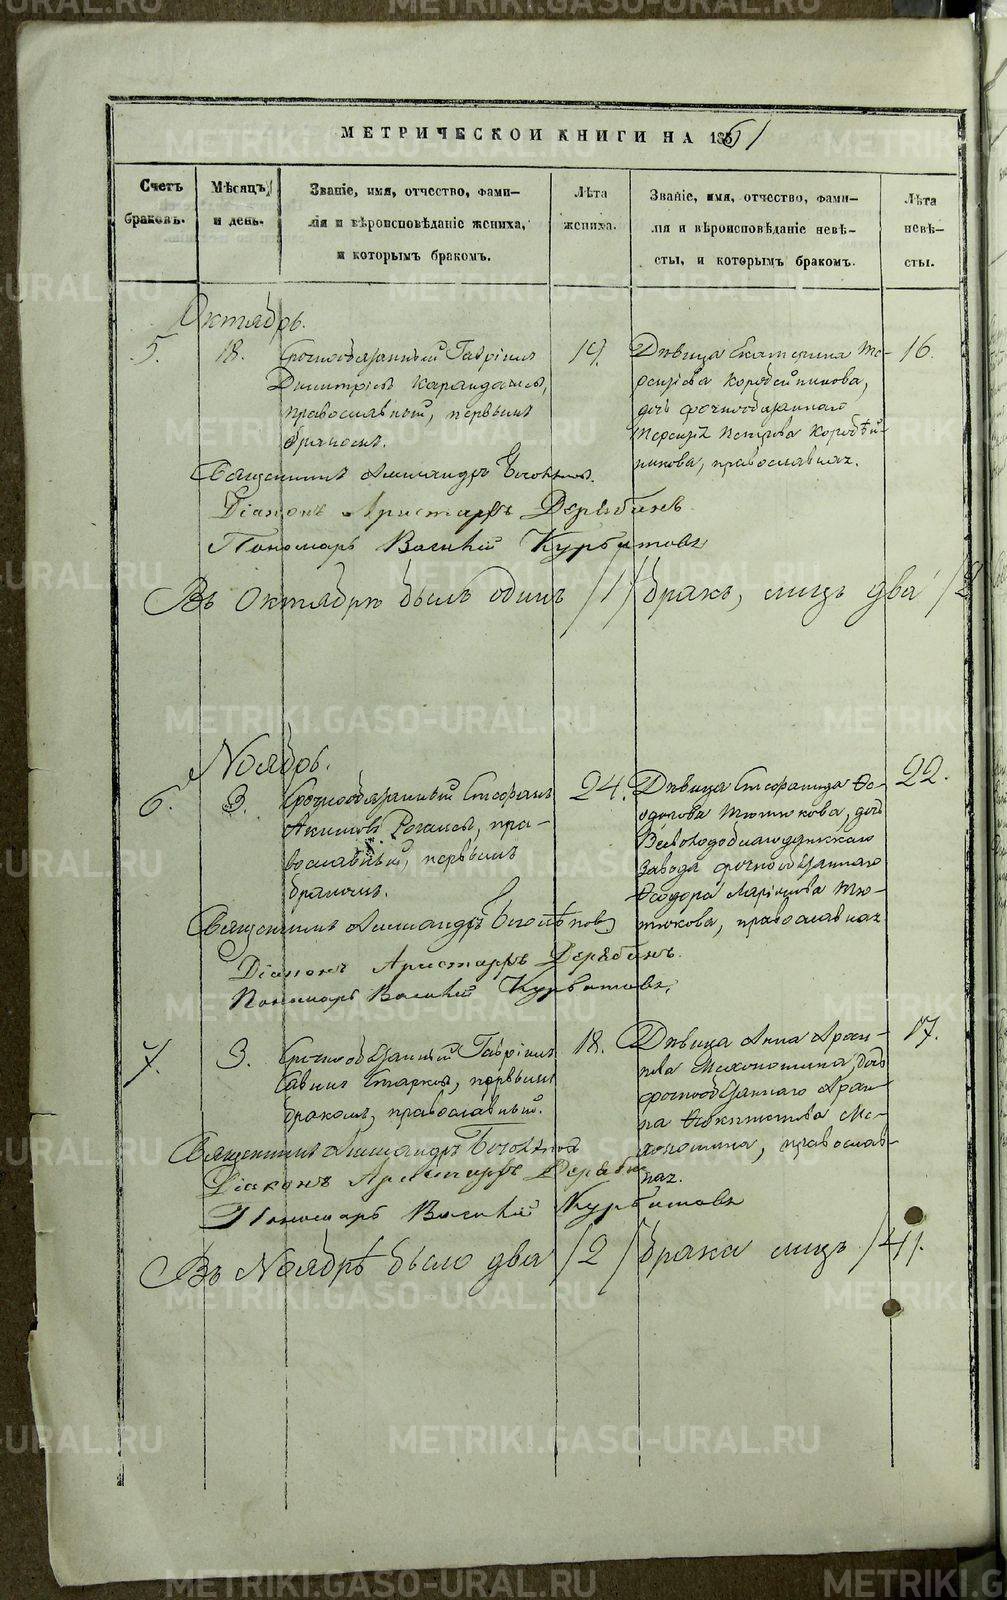 МЕТРИЧЕСКОЙ КНИГИ НА 1861
Счетъ браковъ.
Мѣсяцъ и день.
Званіе, имя, отчество, фами-
лія и вѣроисповѣданіе жениха,
и которымъ бракомъ.
Лѣта
жениха.
Званіе, имя, отчество, фами-
лія и вѣроисповѣданіе невѣ-
сты, и которымъ бракомъ.
Лѣта
невѣ-
сты.
Октябрь.
5.
18.
Срочнообязанный Гавріилъ
Димитріевъ Карандашев,
православный, первымъ
бракомъ.
19.
Дѣвица Екатерина
Коробейникова,
дочь срочнообязаннаго
Петрова Коробѣй-
никова, православная.
16.
Священникъ Александръ
Діаконъ Аристархъ Дерябинъ
Пономарь Василій Курбатовъ
Въ Октябрѣ былъ одинъ /1/ бракъ, лицъ два /2
Ноябрь.
6.
3.
Срочнообязанный Стефанъ
Акимовъ пра-
вославный, первымъ
бракомъ.
24.
Дѣвица Стефанида Ѳе-
одорова Тютюкова, дочь
Всеволодоблагодатскаго
завода срочнообязаннаго
Ѳеодора Ларіонова Тю-
тюкова, православная
22.
Священникъ Александръ
Діаконъ Аристархъ Дерябинъ.
Пономарь Василій Курбатовъ,
7.
3.
Срочнообязанный Гавріилъ
Савинъ первымъ
бракомъ, православный.
18.
Дѣвица Анна Архи-
пова Мехоношина, дочь
срочнообязаннаго Архи-
па Ѳеоктистова Ме-
хоношина, православ-
ная.
17.
Священникъ Александръ
Діаконъ Аристархъ Дерябинъ
Пономарь Василій Курбатовъ
Въ Ноябрѣ было два /2/ брака лицъ /4/.
METRIKI.GASO-URAL.RU